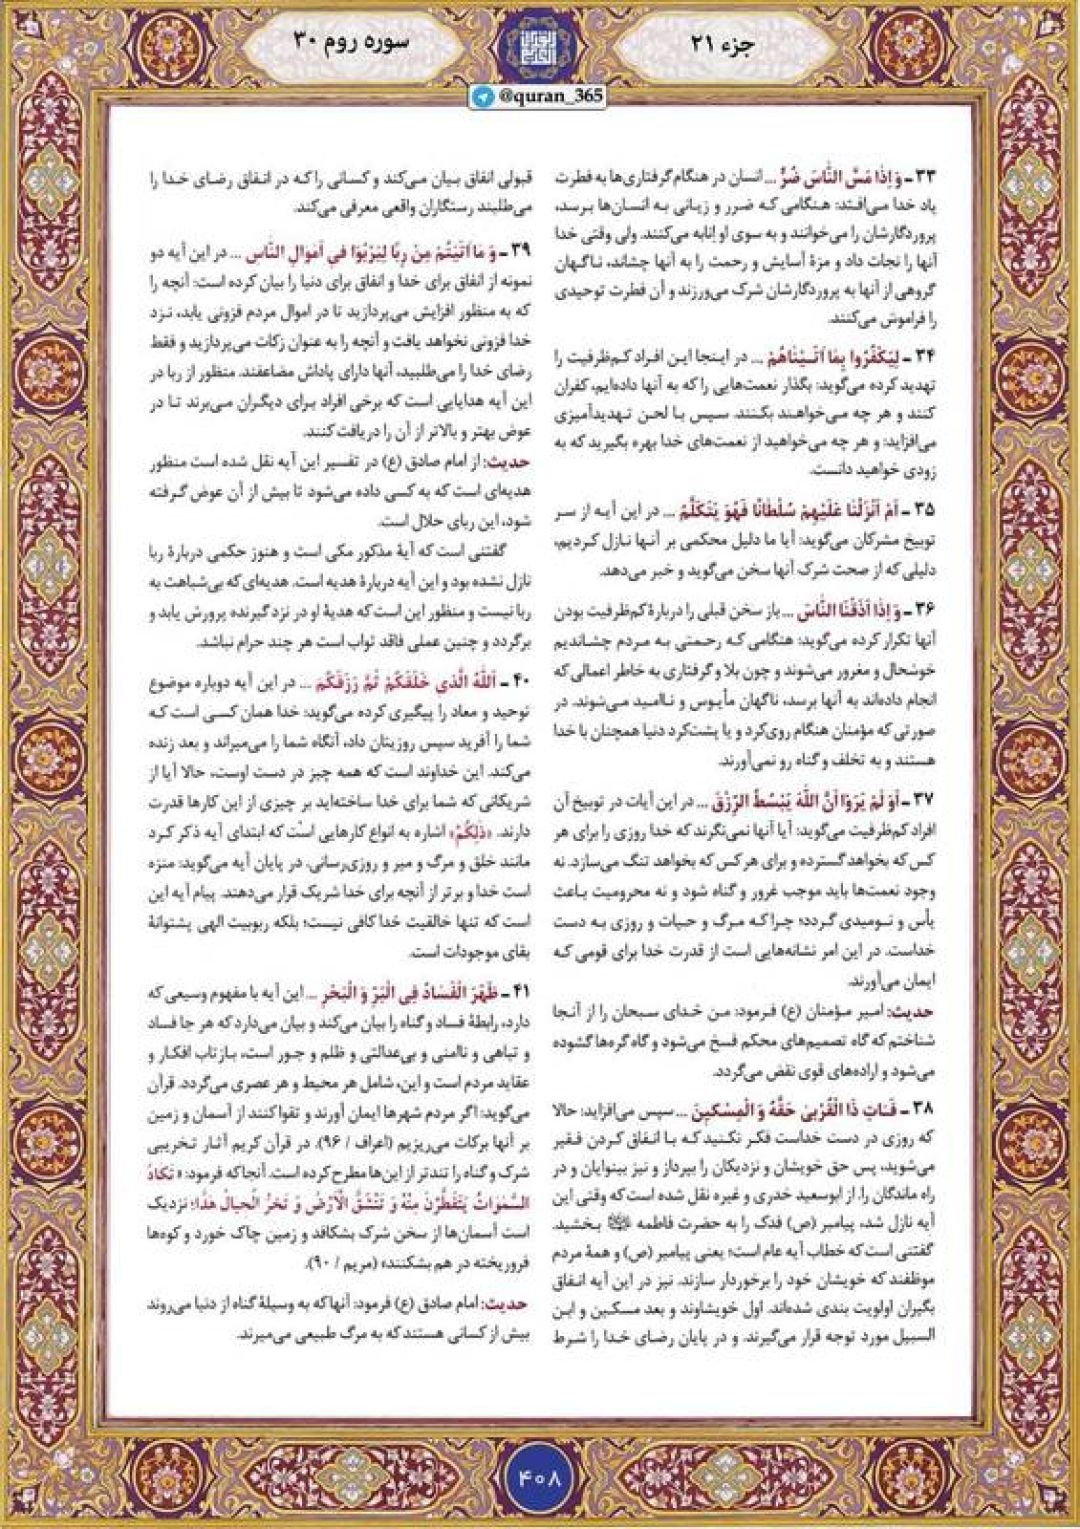 جزء ۲۱
سوره روم ۳۰
@quran_365
۳۳ـ وَ اِذٰا مَسَّ النّٰاسَ ضُرٌّ ... انسان در هنگام گرفتاری‌ها به فطرت
یاد خدا می‌افتد: هنگامی که ضرر و زیانی به انسان‌ها برسد،
پروردگارشان را می‌خوانند و به سوی او انابه می‌کنند. ولی وقتی خدا
آنها را نجات داد و مزهٔ آسایش و رحمت را به آنها چشاند، ناگهان
گروهی از آنها به پروردگارشان شرک می‌ورزند و آن فطرت توحیدی
را فراموش می‌کنند.
۳۴ـ لِیَکْفُرُوا بِمٰا اٰتَیْنٰاهُمْ ... در اینجا این افراد کم‌ظرفیت را
تهدید کرده می‌گوید: بگذار نعمت‌هایی را که به آنها داده‌ایم، کفران
کنند و هر چه می‌خواهند بکنند. سپس با لحن تهدیدآمیزی
می‌افزاید: و هر چه می‌خواهید از نعمت‌های خدا بهره بگیرید که به
زودی خواهید دانست.
۳۵ـ اَمْ اَنْزَلْنٰا عَلَیْهِمْ سُلْطٰانًا فَهُوَ یَتَکَلَّمُ ... در این آیه از سر
توبیخ مشرکان می‌گوید: آیا ما دلیل محکمی بر آنها نازل کردیم،
دلیلی که از صحت شرک آنها سخن می‌گوید و خبر می‌دهد.
۳۶ـ وَ اِذٰا اَذَقْنَا النّٰاسَ ... باز سخن قبلی را دربارهٔ کم‌ظرفیت بودن
آنها تکرار کرده می‌گوید: هنگامی که رحمتی به مردم چشاندیم
خوشحال و مغرور می‌شوند و چون بلا و گرفتاری به خاطر اعمالی که
انجام داده‌اند به آنها برسد، ناگهان مأیوس و ناامید می‌شوند. در
صورتی که مؤمنان هنگام روی‌کرد و یا پشت‌کرد دنیا همچنان با خدا
هستند و به تخلف و گناه رو نمی‌آورند.
۳۷ـ اَوَ لَمْ یَرَوْا اَنَّ اللّٰهَ یَبْسُطُ الرِّزْقَ ... در این آیات در توبیخ آن
افراد کم‌ظرفیت می‌گوید: آیا آنها نمی‌نگرند که خدا روزی را برای هر
کس که بخواهد گسترده و برای هر کس که بخواهد تنگ می‌سازد. نه
وجود نعمت‌ها باید موجب غرور و گناه شود و نه محرومیت باعث
یأس و نومیدی گردد؛ چرا که مرگ و حیات و روزی به دست
خداست. در این امر نشانه‌هایی است از قدرت خدا برای قومی که
ایمان می‌آورند.
حدیث: امیر مؤمنان (ع) فرمود: من خدای سبحان را از آنجا
شناختم که گاه تصمیم‌های محکم فسخ می‌شود و گاه گره‌ها گشوده
می‌شود و اراده‌های قوی نقض می‌گردد.
۳۸ـ فَـٰاتِ ذَا الْقُرْبیٰ حَقَّهُ وَ الْمِسْکینَ ... سپس می‌افزاید: حالا
که روزی در دست خداست فکر نکنید که با انفاق کردن فقیر
می‌شوید، پس حق خویشان و نزدیکان را بپرداز و نیز بینوایان و در
راه ماندگان را. از ابوسعید خدری و غیره نقل شده است که وقتی این
آیه نازل شد، پیامبر (ص) فدک را به حضرت فاطمه بخشید.
گفتنی است که خطاب آیه عام است؛ یعنی پیامبر (ص) و همهٔ مردم
موظفند که خویشان خود را برخوردار سازند. نیز در این آیه انفاق
بگیران اولویت بندی شده‌اند. اول خویشاوند و بعد مسکین و ابن
السبیل مورد توجه قرار می‌گیرند. و در پایان رضای خدا را شرط
قبولی انفاق بیان می‌کند و کسانی را که در انفاق رضای خدا را
می‌طلبند رستگاران واقعی معرفی می‌کند.
۳۹ـ وَ مٰا اٰتَیْتُمْ مِنْ رِبًا لِیَرْبُوَا فی اَمْوٰالِ النّٰاسِ ... در این آیه دو
نمونه از انفاق برای خدا و انفاق برای دنیا را بیان کرده است: آنچه را
که به منظور افزایش می‌پردازید تا در اموال مردم فزونی یابد، نزد
خدا فزونی نخواهد یافت و آنچه را به عنوان زکات می‌پردازید و فقط
رضای خدا را می‌طلبید، آنها دارای پاداش مضاعفند. منظور از ربا در
این آیه هدایایی است که برخی افراد برای دیگران می‌برند تا در
عوض بهتر و بالاتر از آن را دریافت کنند.
حدیث: از امام صادق (ع) در تفسیر این آیه نقل شده است منظور
هدیه‌ای است که به کسی داده می‌شود تا بیش از آن عوض گرفته
شود، این ربای حلال است.
گفتنی است که آیهٔ مذکور مکی است و هنوز حکمی دربارهٔ ربا
نازل نشده بود و این آیه دربارهٔ هدیه است. هدیه‌ای که بی‌شباهت به
ربا نیست و منظور این است که هدیهٔ او در نزد گیرنده پرورش یابد و
برگردد و چنین عملی فاقد ثواب است هر چند حرام نباشد.
۴۰ـ اَللّٰهُ الَّذی خَلَقَکُمْ ثُمَّ رَزَقَکُمْ ... در این آیه دوباره موضوع
توحید و معاد را پیگیری کرده می‌گوید: خدا همان کسی است که
شما را آفرید سپس روزیتان داد، آنگاه شما را می‌میراند و بعد زنده
می‌کند. این خداوند است که همه چیز در دست اوست، حالا آیا از
شریکانی که شما برای خدا ساخته‌اید بر چیزی از این کارها قدرت
دارند. «ذٰلِکُمْ» اشاره به انواع کارهایی است که ابتدای آیه ذکر کرد
مانند خلق و مرگ و میر و روزی‌رسانی. در پایان آیه می‌گوید: منزه
است خدا و برتر از آنچه برای خدا شریک قرار می‌دهند. پیام آیه این
است که تنها خالقیت خدا کافی نیست؛ بلکه ربوبیت الهی پشتوانهٔ
بقای موجودات است.
۴۱ـ ظَهَرَ الْفَسٰادُ فِی الْبَرِّ وَ الْبَحْرِ ... این آیه با مفهوم وسیعی که
دارد، رابطهٔ فساد و گناه را بیان می‌کند و بیان می‌دارد که هر جا فساد
و تباهی و ناامنی و بی‌عدالتی و ظلم و جور است، بازتاب افکار و
عقاید مردم است و این، شامل هر محیط و هر عصری می‌گردد. قرآن
می‌گوید: اگر مردم شهرها ایمان آورند و تقوا کنند از آسمان و زمین
بر آنها برکات می‌ریزیم (اعراف / ۹۶). در قرآن کریم آثار تخریبی
شرک و گناه را تندتر از این‌ها مطرح کرده است. آنجا که فرمود: «تَکٰادُ
السَّمٰوٰاتُ یَتَفَطَّرْنَ مِنْهُ وَ تَنْشَقُّ الْاَرْضُ وَ تَخِرُّ الْجِبٰالُ هَدًّا؛ نزدیک
است آسمان‌ها از سخن شرک بشکافد و زمین چاک خورد و کوه‌ها
فروریخته در هم بشکنند» (مریم / ۹۰).
حدیث: امام صادق (ع) فرمود: آنها که به وسیلهٔ گناه از دنیا می‌روند
بیش از کسانی هستند که به مرگ طبیعی می‌میرند.
۴۰۸